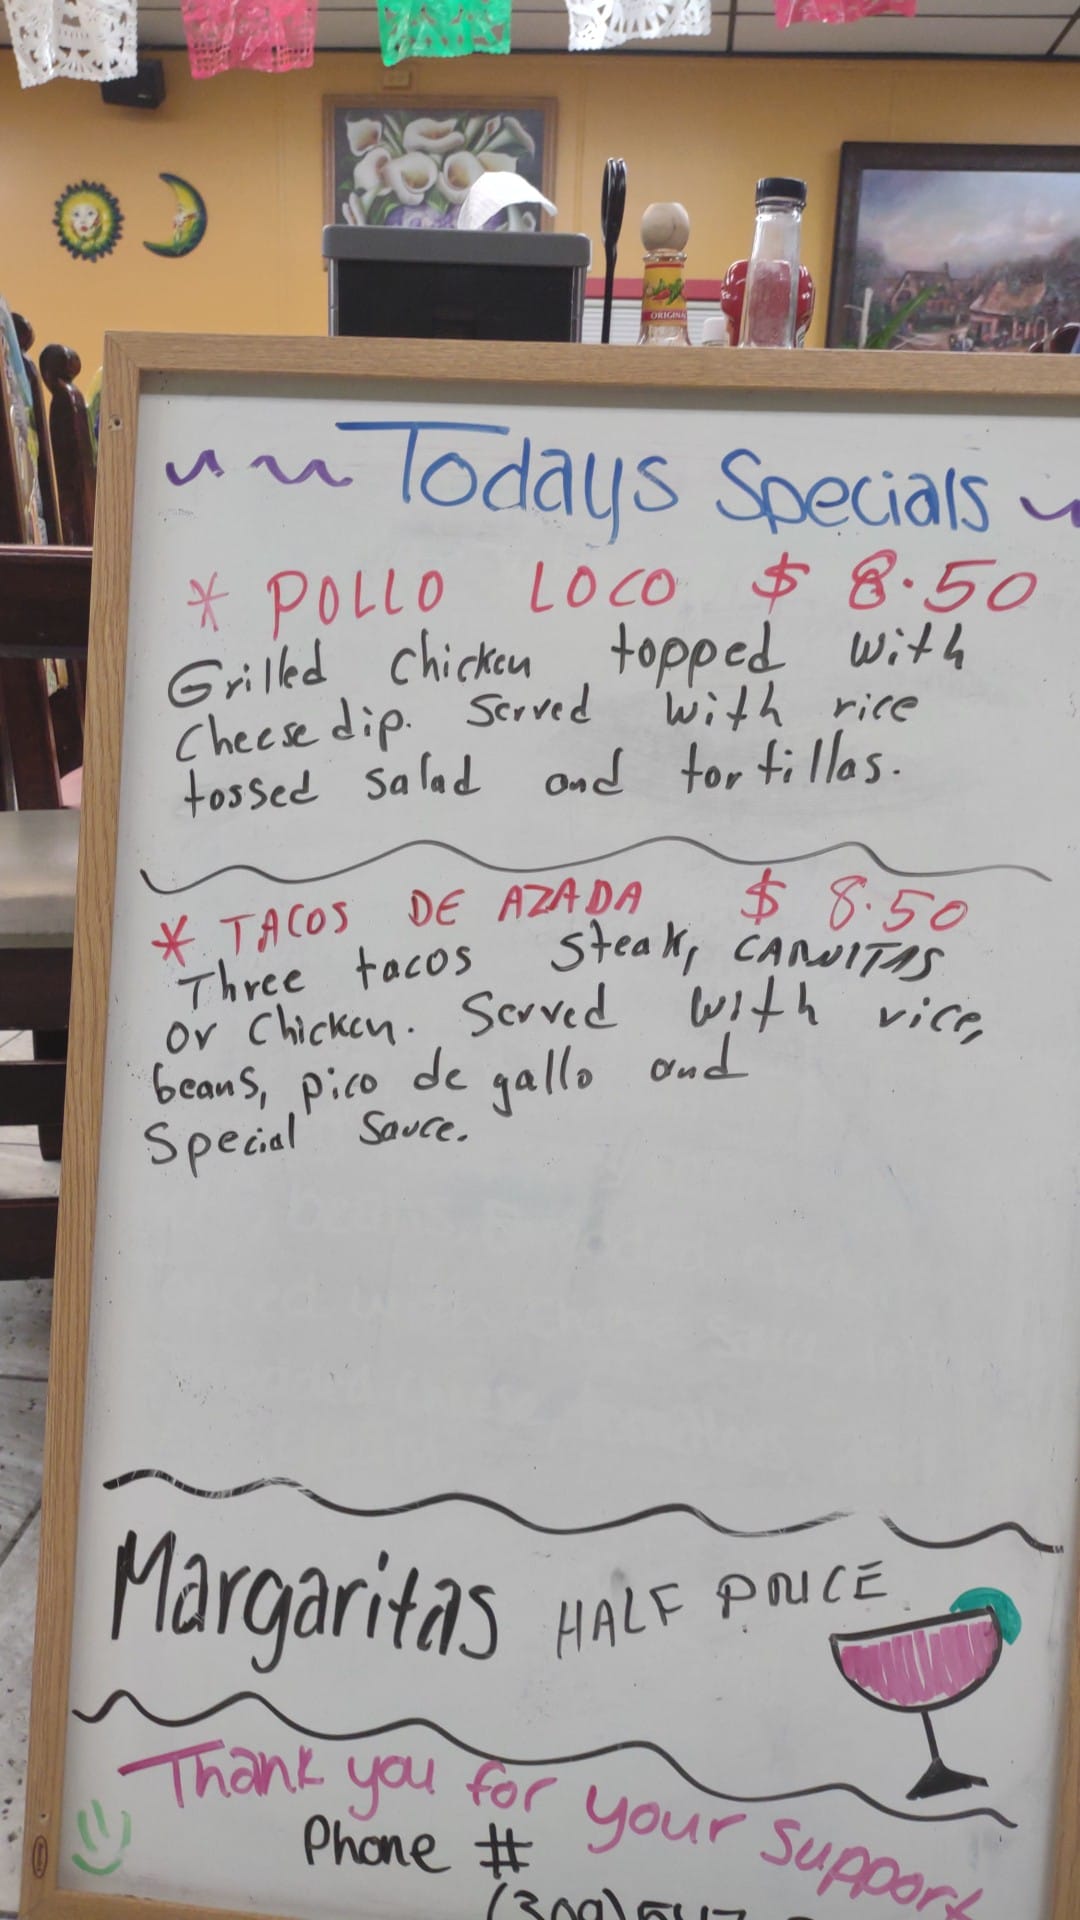 ORIGINAL
Todays Specials
* POLLO LOCO $ 8.50
Grilled chicken topped with
cheese dip. Served with rice
tossed salad and tortillas.
* TACOS DE AZADA $ 8.50
Three tacos steak, CARNITAS
or chicken. Served with rice,
beans, pico de gallo and
special sauce.
Margaritas HALF PRICE
Thank you for your support
Phone #
(309) 547